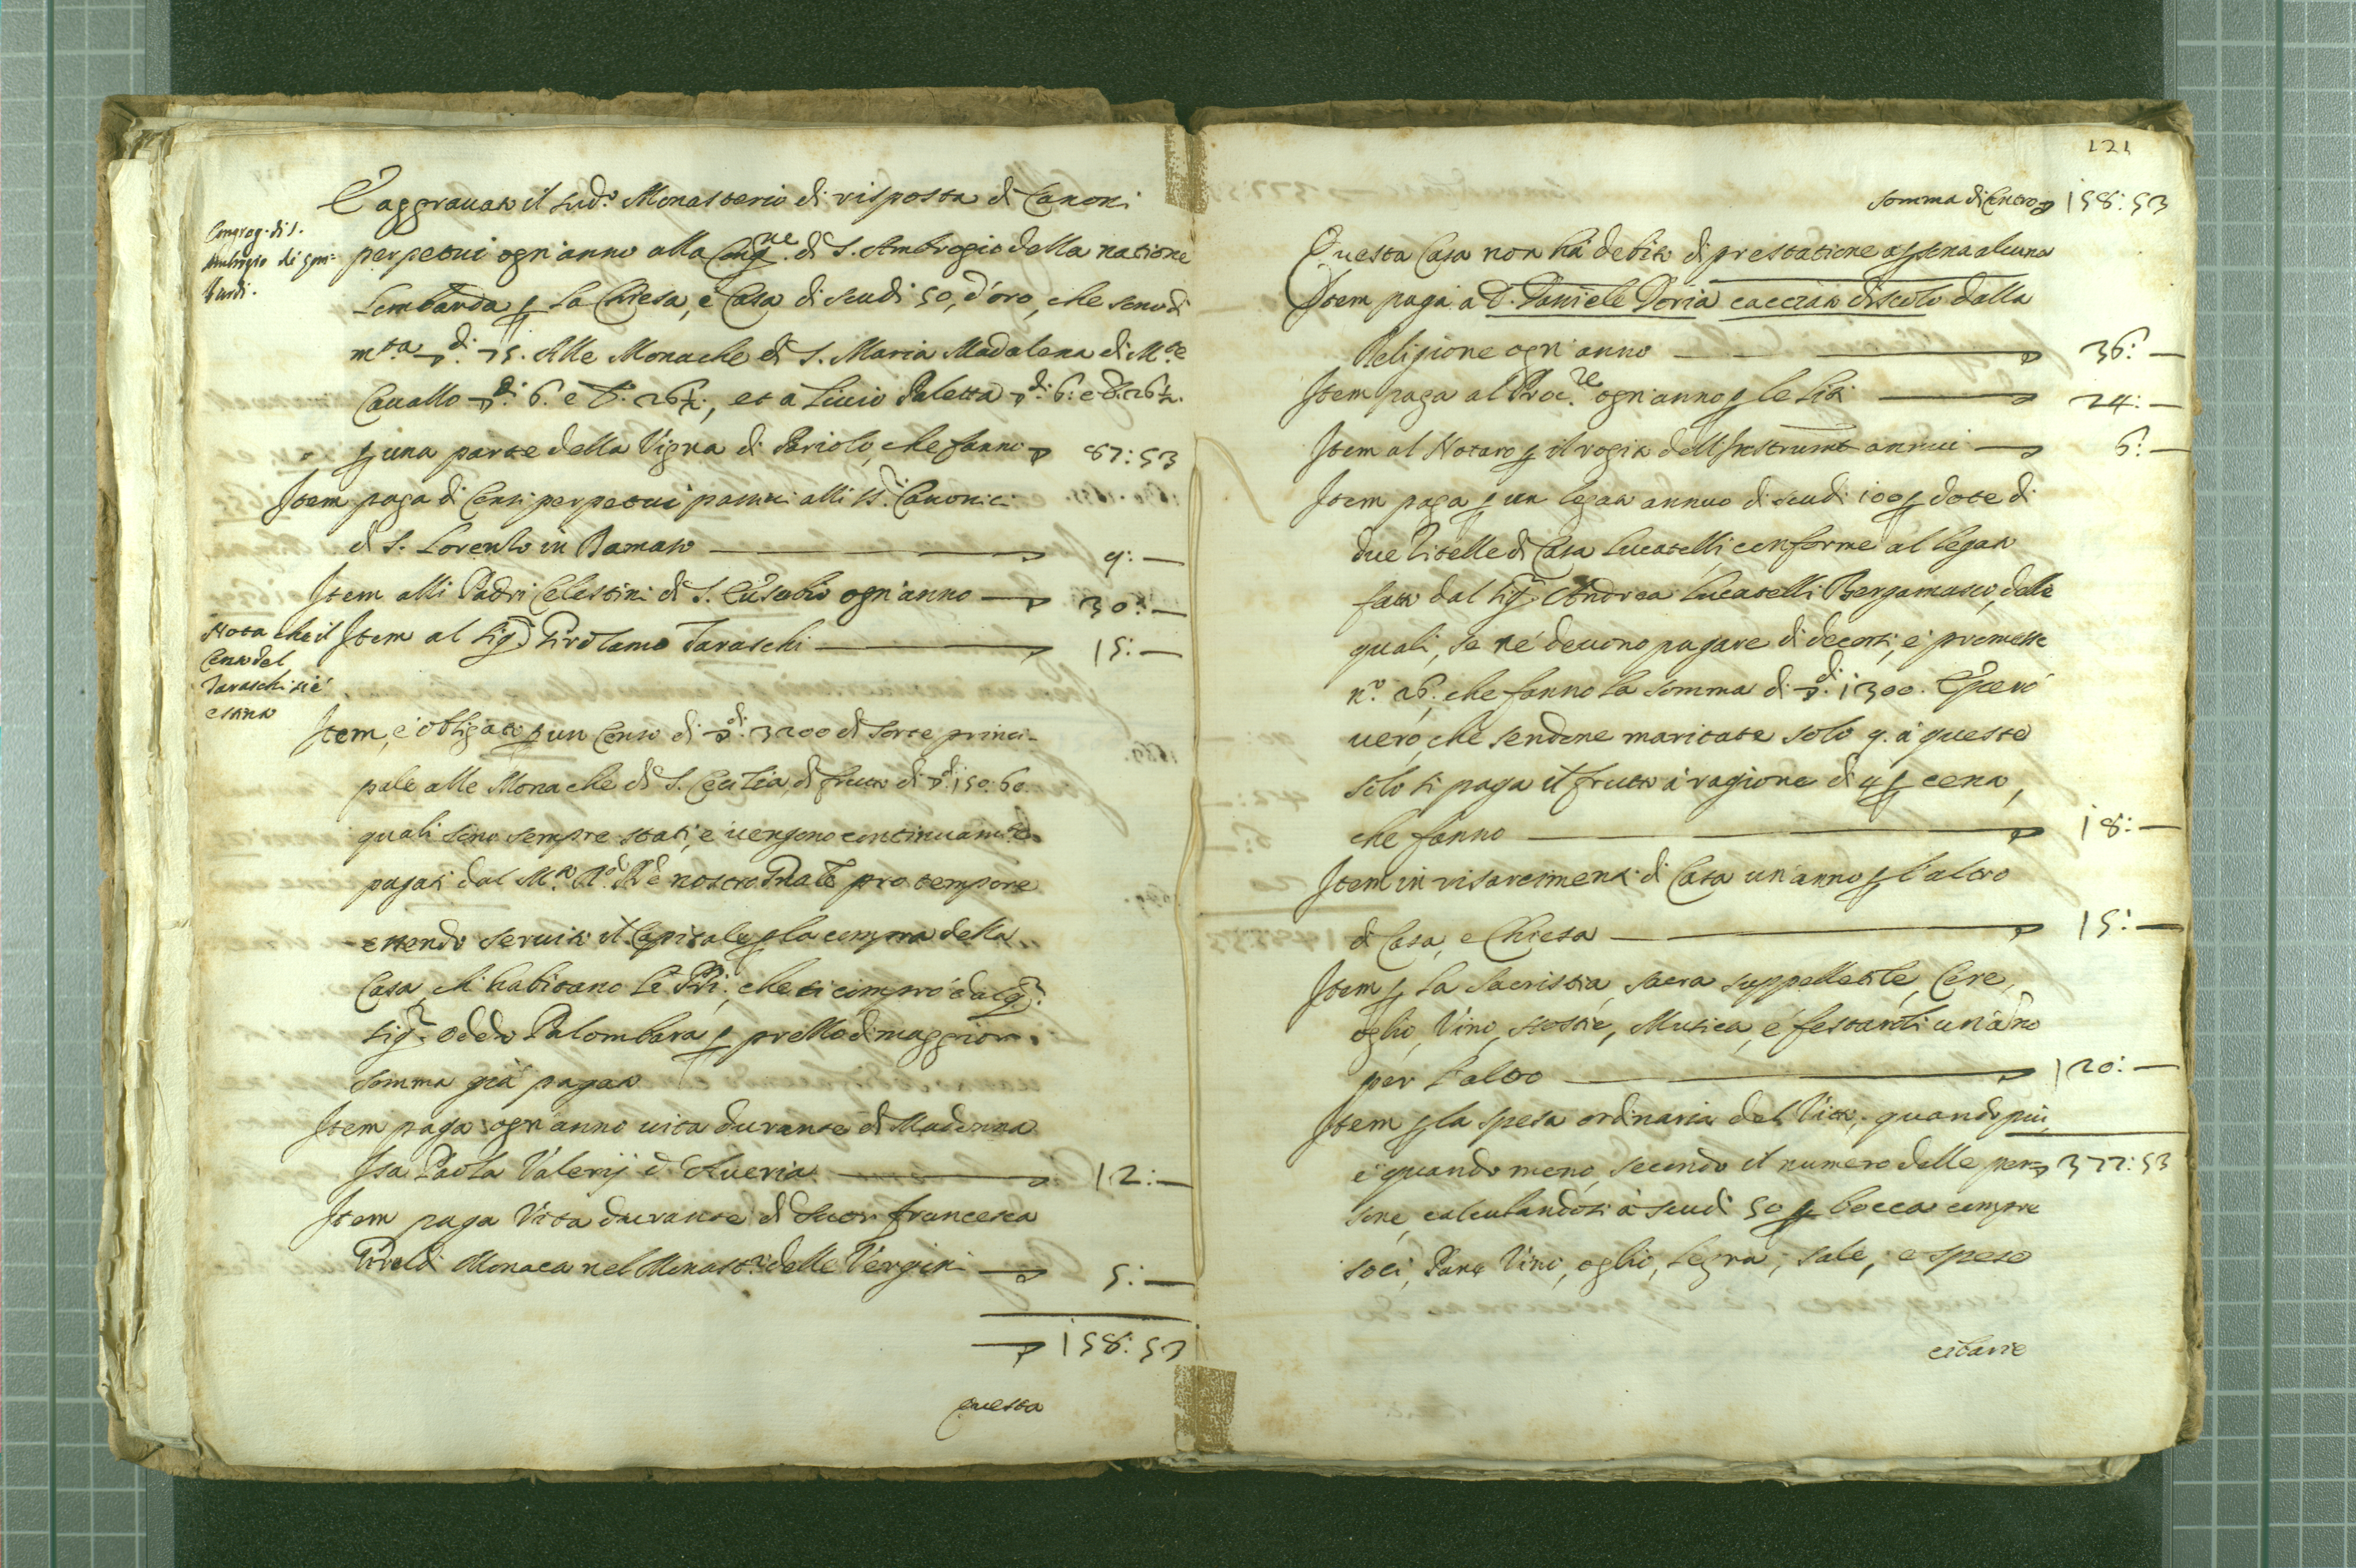 È aggrauato il sud.º Monasterio di risposta di Canoni
Congreg. di S.
Ambrogio de
bardi.
perpetui ogn'anno alla Cong.ne di S. Ambrogio della natione
Lombarda p la Chiesa, e Casa di scudi 50, d'oro, che sono di
m.ta ▽di 75. Alle Monache di S. Maria Madalena di M.te
Cauallo ▽di 6. e b. 26½., et a Liuio Paletta ▽di 6: e b. 26½.
p una parte della Vigna di Pariolo, che fanno ▽ 87:53
Item paga di Censi perpetui passiui alli SS.ri Canonici
di S. Lorenzo in Damaso — 9: —
Item alli Padri Celestini di S. Eusebio ogn'anno — ▽ 30: —
Nota che il
Censo del
Taraschi si è
estinto
Item al Sig.r Girolamo Taraschi — 15: —
Item, è obligato p un Censo di ▽di 3200 di sorte princi-
pale alle Monache di S. Cecilia, di frutto di ▽di 150. 60.
quali sono sempre stati, e uengono continuam.te
pagati dal M.to R.do Pre nostro Prãle pro tempore
essendo seruito il Capitale p la compra della
Casa, ch' habitano le PP.ri, che si comprò dal q.
Sig.r Oddo Palombara p prezzo di maggior
somma già pagato
Item paga ogn'anno uita durante di Madonna
Isa Paola Valerij d' Aueria — 12: —
Item paga Vita durante di Suor Francesca
Giraldi Monaca nel Monast.º delle Vergini — ▽ 5: —
▽ 158: 53
questa
121
somma di Contro ▽ 158: 53
Questa Casa non hà debito di prestatione assena alcuna
Item paga a D. Daniele Doria cacciato discolo dalla
Religione ogn'anno — ▽ 36: —
Item paga al Proc.re ogn'anno p le liti — 24: —
Item al Notaro p il rogito dell'Instrumti annui — 6: —
Item paga p un legato annuo di scudi 100 p dote di
due Zitelle di Casa Lucatelli, conforme al legato
fatto dal Sig.r Andrea Lucatelli Bergamasco, delle
quali, se né deuono pagare di decorsi, e promesse
n.º 26. che fanno la somma di ▽di 1300. È però
uero, che sendone maritate solo 9. à queste
solo si paga il frutto à ragione di 4 p cento,
che fanno — ▽ 18: —
Item in risarcimenti di Casa un'anno p l'altro
di Casa, e Chiesa — ▽ 15: —
Item p la Sacristia, sacra suppellettile, Cere,
oglio, Vino, Hostie, Musica, e festaroli un'ãno
per l'altro — ▽ 120: —
Item p la spesa ordinaria del Vitto, quando più,
e quando meno, secondo il numero delle per= ▽ 377: 53
sone, calculandosi à scudi 50 p bocca compre
soci, Pane, Vino, oglio, legna, sale, e spese
cibarie